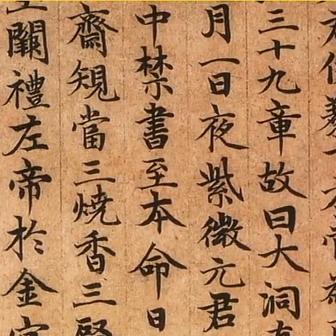 三十九章故曰大洞
月一日夜紫微元君
中禁書至本命日
齋䂓當三燒香三
闕禮左帝於金